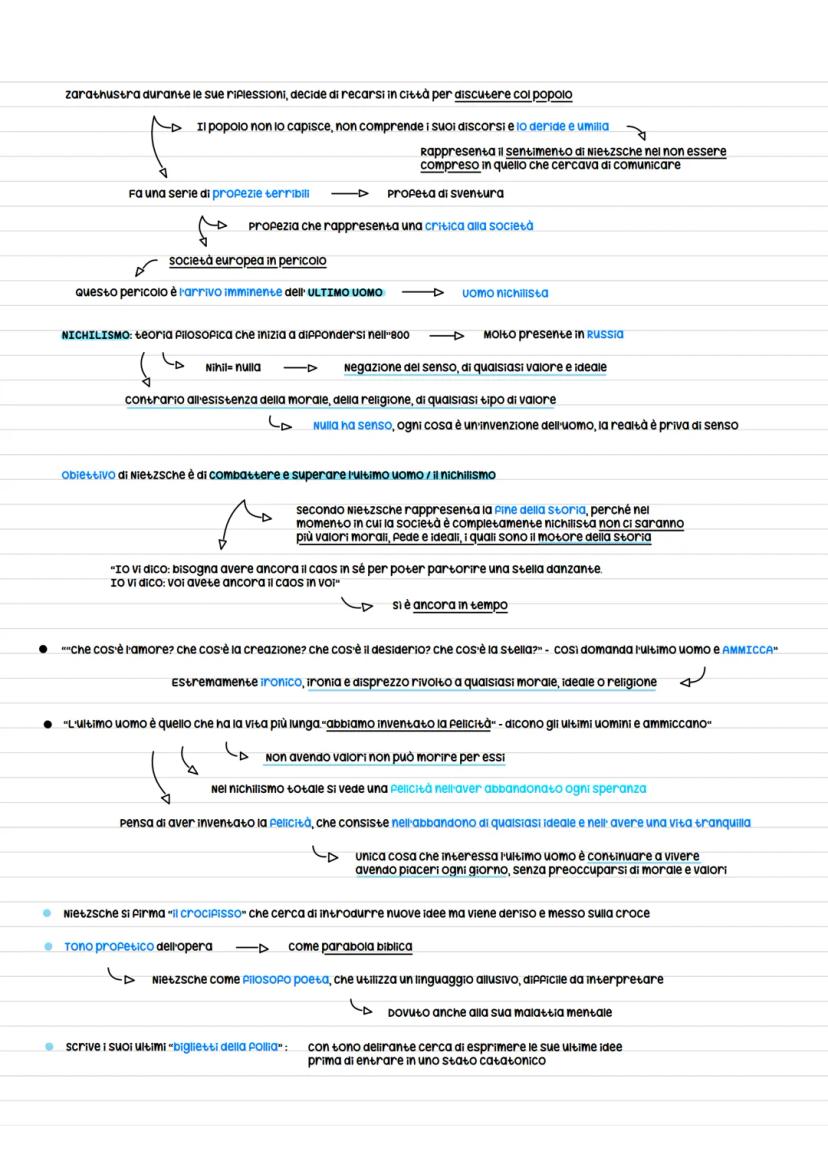 Zarathustra durante le sue riflessioni, decide di recarsi in città per discutere col popolo
Il popolo non lo capisce, non comprende i suoi discorsi e lo deride e umilia
Rappresenta il sentimento di Nietzsche nel non essere
compreso in quello che cercava di comunicare
Fa una serie di profezie terribili
Profeta di sventura
Profezia che rappresenta una critica alla società
società europea in pericolo
Questo pericolo è l'arrivo imminente dell' ULTIMO UOMO
uomo nichilista
NICHILISMO: teoria filosofica che inizia a diffondersi nell''800
Molto presente in Russia
Nihil= nulla
Negazione del senso, di qualsiasi valore e ideale
contrario all'esistenza della morale, della religione, di qualsiasi tipo di valore
Nulla ha senso, ogni cosa è un'invenzione dell'uomo, la realtà è priva di senso
Obiettivo di Nietzsche è di combattere e superare l'ultimo uomo / il nichilismo
secondo Nietzsche rappresenta la fine della storia, perché nel
momento in cui la società è completamente nichilista non ci saranno
più valori morali, fede e ideali, i quali sono il motore della storia
"Io vi dico: bisogna avere ancora il caos in sé per poter partorire una stella danzante.
Io vi dico: voi avete ancora il caos in voi"
si è ancora in tempo
• ""Che cos'è l'amore? Che cos'è la creazione? Che cos'è il desiderio? Che cos'è la stella?" - così domanda l'ultimo uomo e AMMICCA"
Estremamente ironico, ironia e disprezzo rivolto a qualsiasi morale, ideale o religione
• "L'ultimo uomo è quello che ha la vita più lunga."abbiamo inventato la felicità" - dicono gli ultimi uomini e ammiccano"
Non avendo valori non può morire per essi
Nel nichilismo totale si vede una felicità nell'aver abbandonato ogni speranza
Pensa di aver inventato la felicità, che consiste nell'abbandono di qualsiasi ideale e nell' avere una vita tranquilla
Unica cosa che interessa l'ultimo uomo è continuare a vivere
avendo piaceri ogni giorno, senza preoccuparsi di morale e valori
• Nietzsche si firma "il crocifisso" che cerca di introdurre nuove idee ma viene deriso e messo sulla croce
• Tono profetico dell'opera
come parabola biblica
Nietzsche come filosofo poeta, che utilizza un linguaggio allusivo, difficile da interpretare
Dovuto anche alla sua malattia mentale
• Scrive i suoi ultimi "biglietti della follia" :
con tono delirante cerca di esprimere le sue ultime idee
prima di entrare in uno stato catatonico